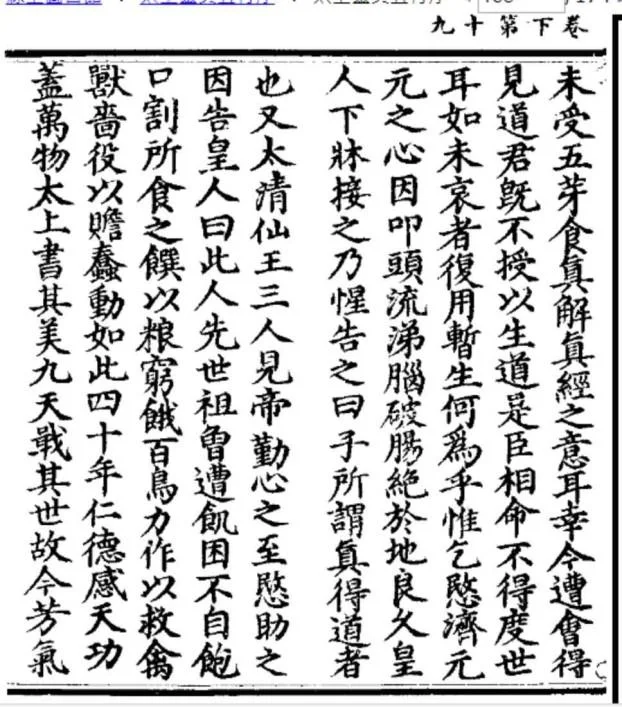 卷下第十九
未受五芽食眞解眞經之意耳幸今遭會得
見道君旣不授以生道是臣相命不得度世
耳如未哀者復用暫生何爲乎惟乞愍濟元
元之心因叩頭流涕腦破腸絕於地良久皇
人下牀接之乃惺告之曰子所謂眞得道者
也又太清仙王三人見帝勤心之至愍助之
因告皇人曰此人先世祖曾遭飢困不自飽
口割所食之饌以粮窮餓百鳥力作以救禽
獸嗇役以贍蠢動如此四十年仁德感天功
蓋萬物太上書其美九天戢其世故今芳氣